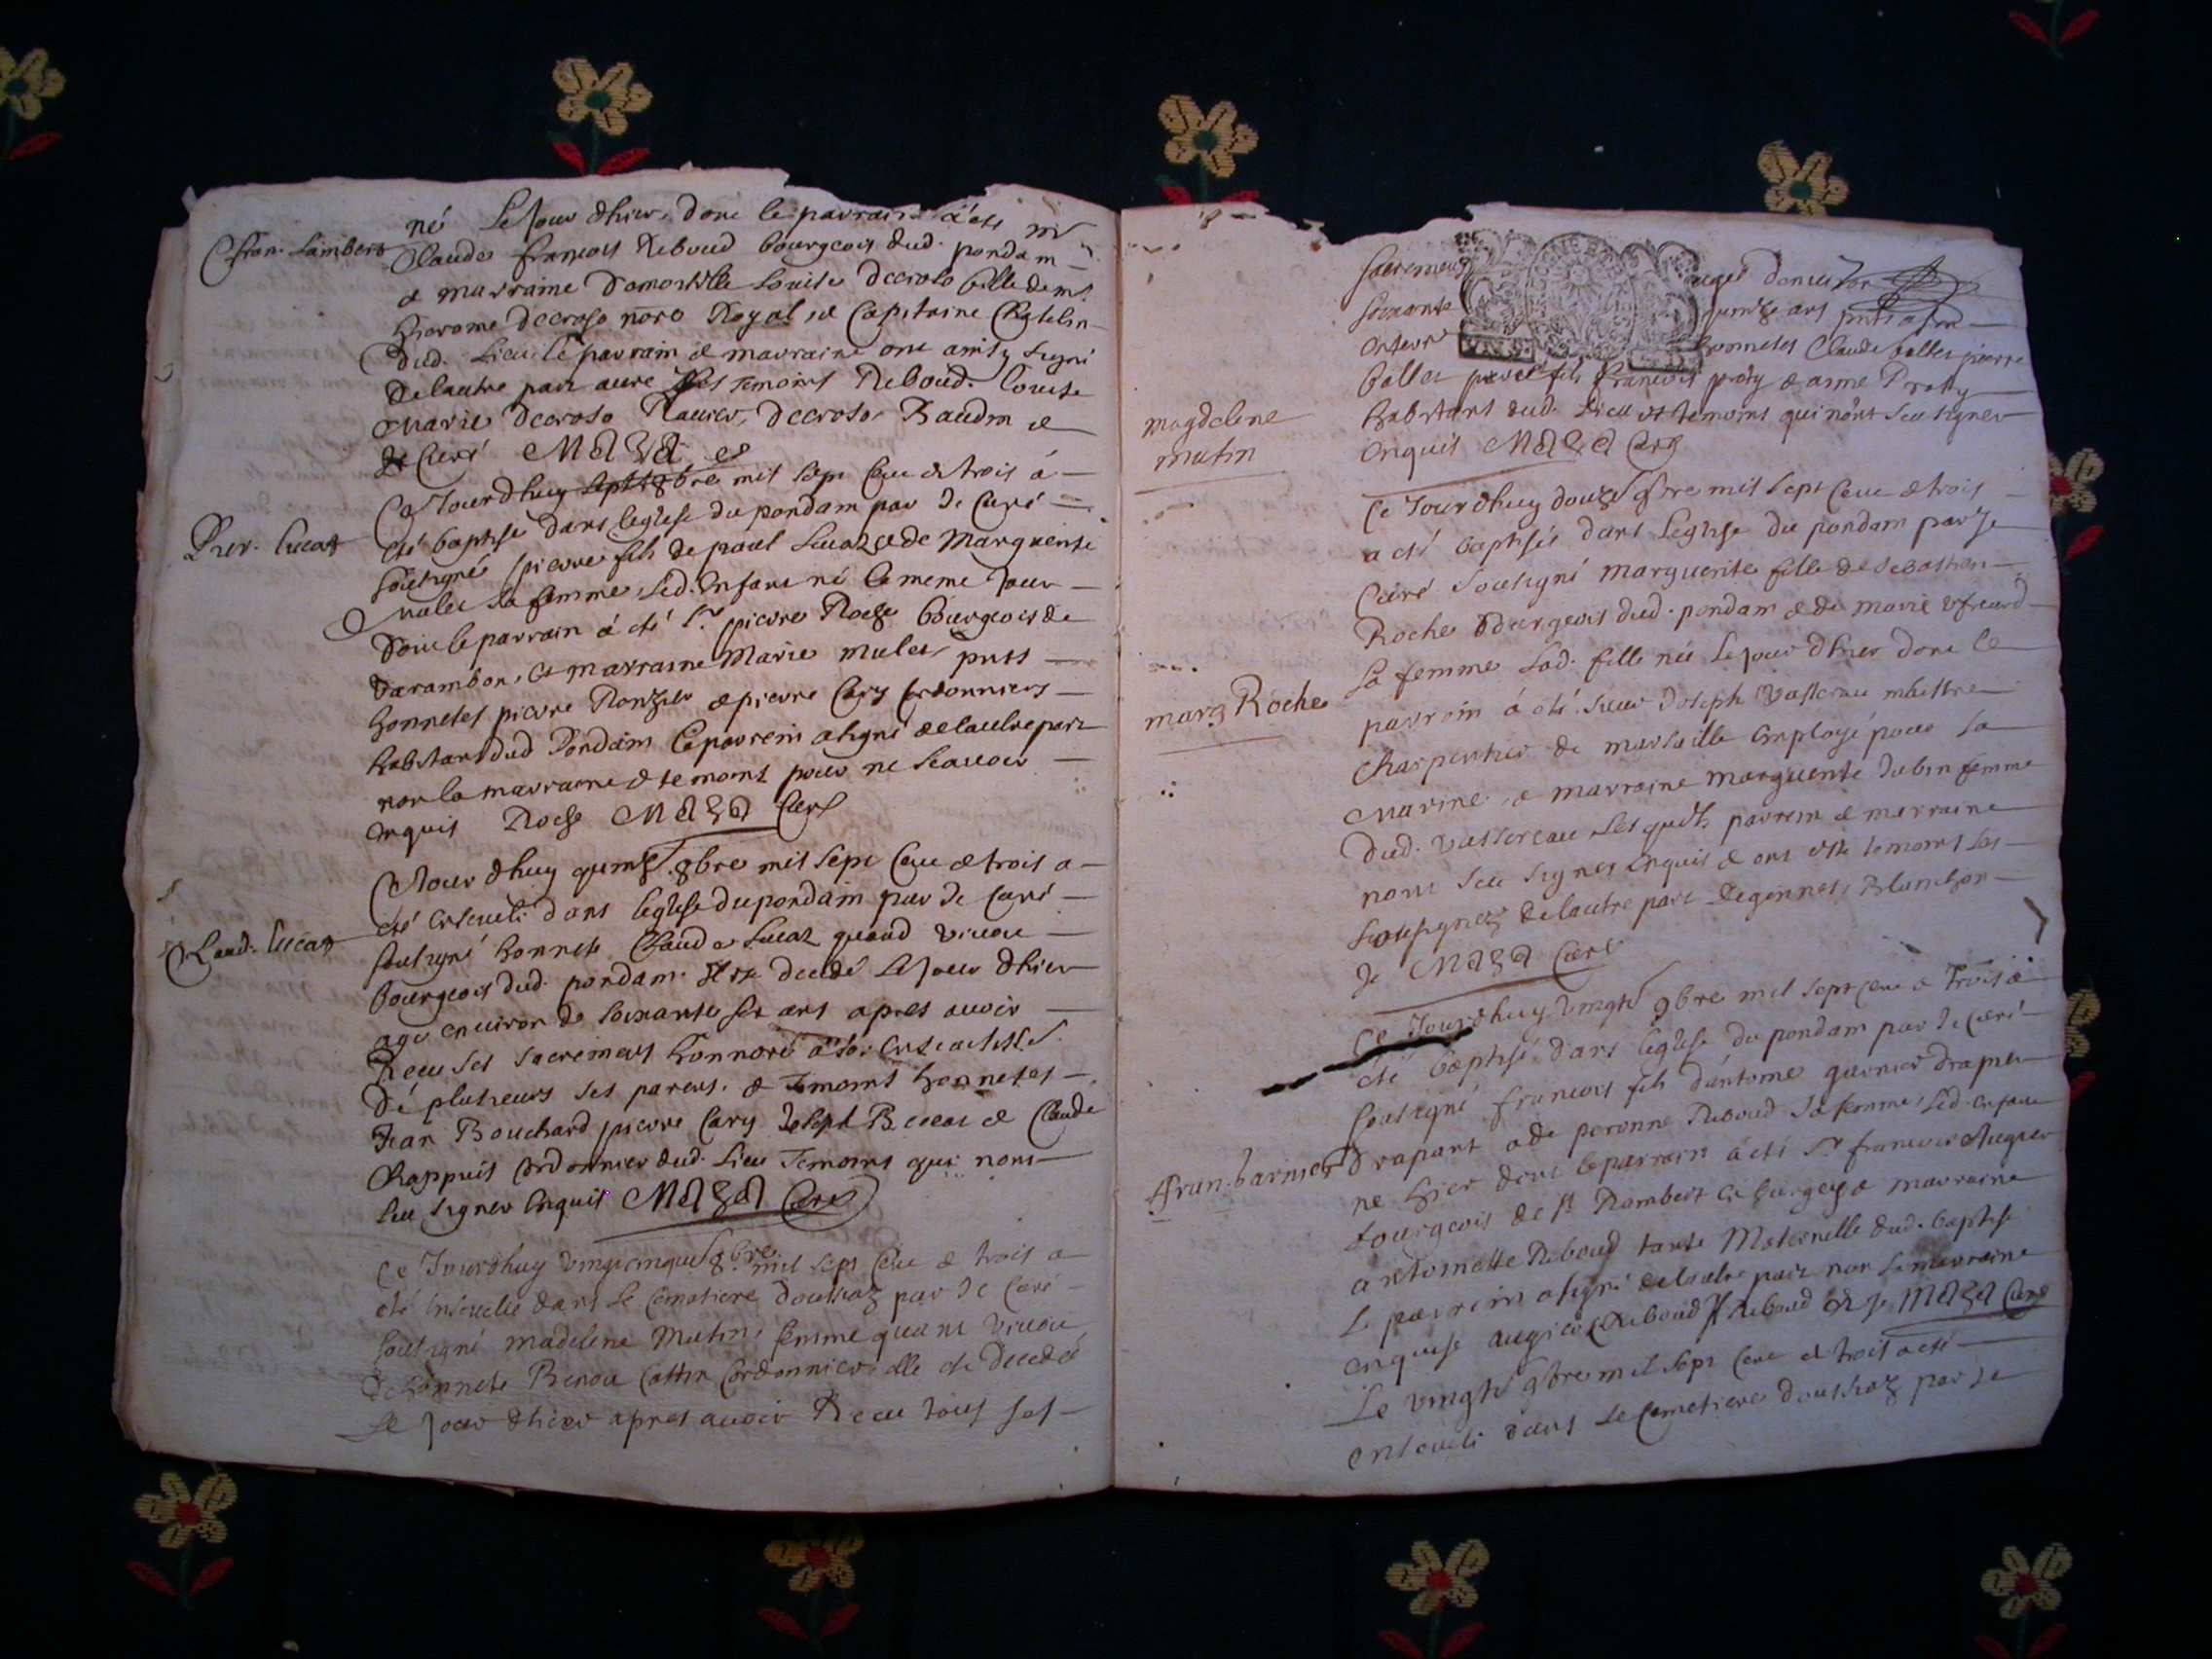 né Le Jour dhier, dont le parrain à été mr
fran. Lambert
Claude françois Reboud bourgeois dud. pondam
& marraine Damoiselle Louise decroso fille de mr
hierome decroso nore Royal, & Capitaine Chatelin
dud. Lieu le parrain & marraine ont ainsy signé
de lautre part avec les temoins Reboud. Louise
Marie decroso Ravier, decroso, Baudin &
Je Curé Maza
Ce Jourdhuy sept 8bre mil sept Cent & trois à
Pier. Lucaz
été baptise dans leglise du pondam par Je Curé
soutsigné pierre fils de paul Lucaz & de Marguerite
mulet sa femme, Led. Enfant né le meme Jour
dont le parrain à été Sr pierre Roche bourgeois de
Varambon, & marraine Marie mulet, pnts
honnetes pierre & pierre Cary Cordonniers
habitants dud Pondam Le parrein a signé de lautre part
non la marraine & temoins pour ne scavoir
enquis Roche Maza Curé
Ce Jour dhuy quinze 8bre mil sept Cent & trois a
été enseveli dans leglise du pondam par Je Curé
Claud. Lucaz
soutsigné honnete Claude Lucaz quand vivoit
bourgeois dud. pondam. Il est decedé Le Jour dhier
agé environ de soixante six ans apres avoir
Receu ses sacremens honnoré à son
de plusieurs ses parens, & temoins honnetes
Jean Bouchard pierre Cary Joseph & Claude
Chappuis Cordonnier dud. Lieu Temoins qui nont
sceu signer enquis Maza Curé
Ce Jourdhuy vingt cinque 8bre mil sept Cent & trois a
été ensevelie dans Le Cemetiere doussiaz par Je Curé
soutsigné madelene Mutin, femme quant vivoit
d honnete Benoit Cottin Cordonnier elle est decedée
Le Jour dhier apres avoir Receu tous ses
sacremens agée denviron
soixante quinze ans pnts a son
enterrt honnetes Claude bollet pierre
bollet fils francois & anne
magdelene
mutin
habitans dud. Lieu & temoins qui nont sceu signer
enquis Maza Curé
Ce Jourdhuy douze 9bre mil sept Cent & trois
a été baptisée dans Leglise du pondam par Je
Curé soutsigné marguerite fille de sebastien
Roche Bourgeois dud. pondam & de marie
sa femme Lad. fille née Le Jour dhier dont le
marg Roche
parrain à été. sieur Joseph Vassereau maistre
Charpentier de marseille employé pour la
Marine, & marraine marguerite Jubin femme
dud. Vassereau Lesquels parrein & marraine
nont sceu signer enquis & ont esté temoins les
soussignez de lautre part Degennes, Blanchon
Je Maza Curé
Ce Jourdhuy vingts 9bre mil sept cent & trois à
été baptisé dans leglise du pondam par Je Curé
soutsigné francois fils dantoine garnier drapier
fran. barnier
drapant & de peronne Reboud sa femme, Led. enfant
ne hier dont le parrain à été Sr francois Augier
bourgeois de St Rambert en bugey & marraine
antoinette Reboud tante Maternelle dud. baptisé
Le parrein a signé de lautre part non la marraine
enquise augier Reboud Reboud & Je Maza Curé
Le vingts 9bre mil sept Cent & trois a été
enseveli dans Le Cemetiere doussiaz par Je